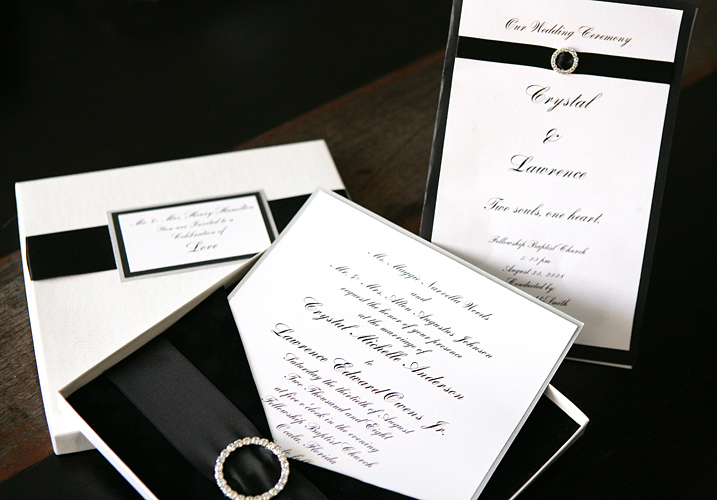 Our Wedding Ceremony
Crystal
&
Lawrence
Two souls, one heart.
Fellowship Baptist Church
August 23, 2008
5:00 pm
Conducted by
Smith
Mr. & Mrs. Henry Hamilton
You are Invited to a
Celebration of
Love
Ms. Maggie Woods
and
Mr. & Mrs. Allen Augustus Johnson
request the honor of your presence
at the marriage of
Crystal Michelle Anderson
to
Lawrence Edward Owens Jr.
Saturday the thirtieth of August
Two Thousand and Eight
at five o'clock in the evening
Fellowship Baptist Church
Ocala, Florida